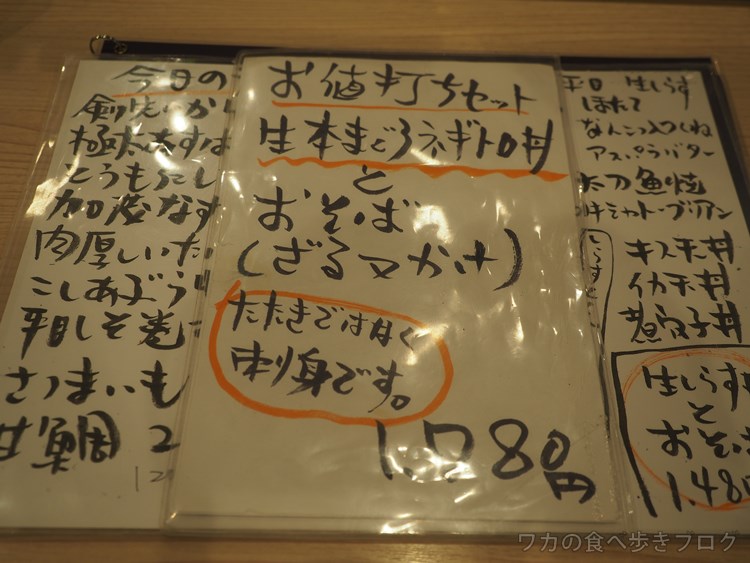 今日の
剣先いか
極太あすぱ
とうもろこし
加茂なす
肉厚しいた
こしあぶら
平目しそ巻
さつまいも
甘鯛 2
お値打ちセット
生本まぐろネギトロ丼
と
おそば
(ざるorかけ)
たたきではなく
刺身です。
1.780円
平目 生しらす
ほたて
なんこつ入つくね
アスパラバター
太刀魚焼
シャトーブリアン
キス天丼
イカ天丼
煮穴子丼
生しらす
と
おそば
1.480
ワカの食べ歩きブログ